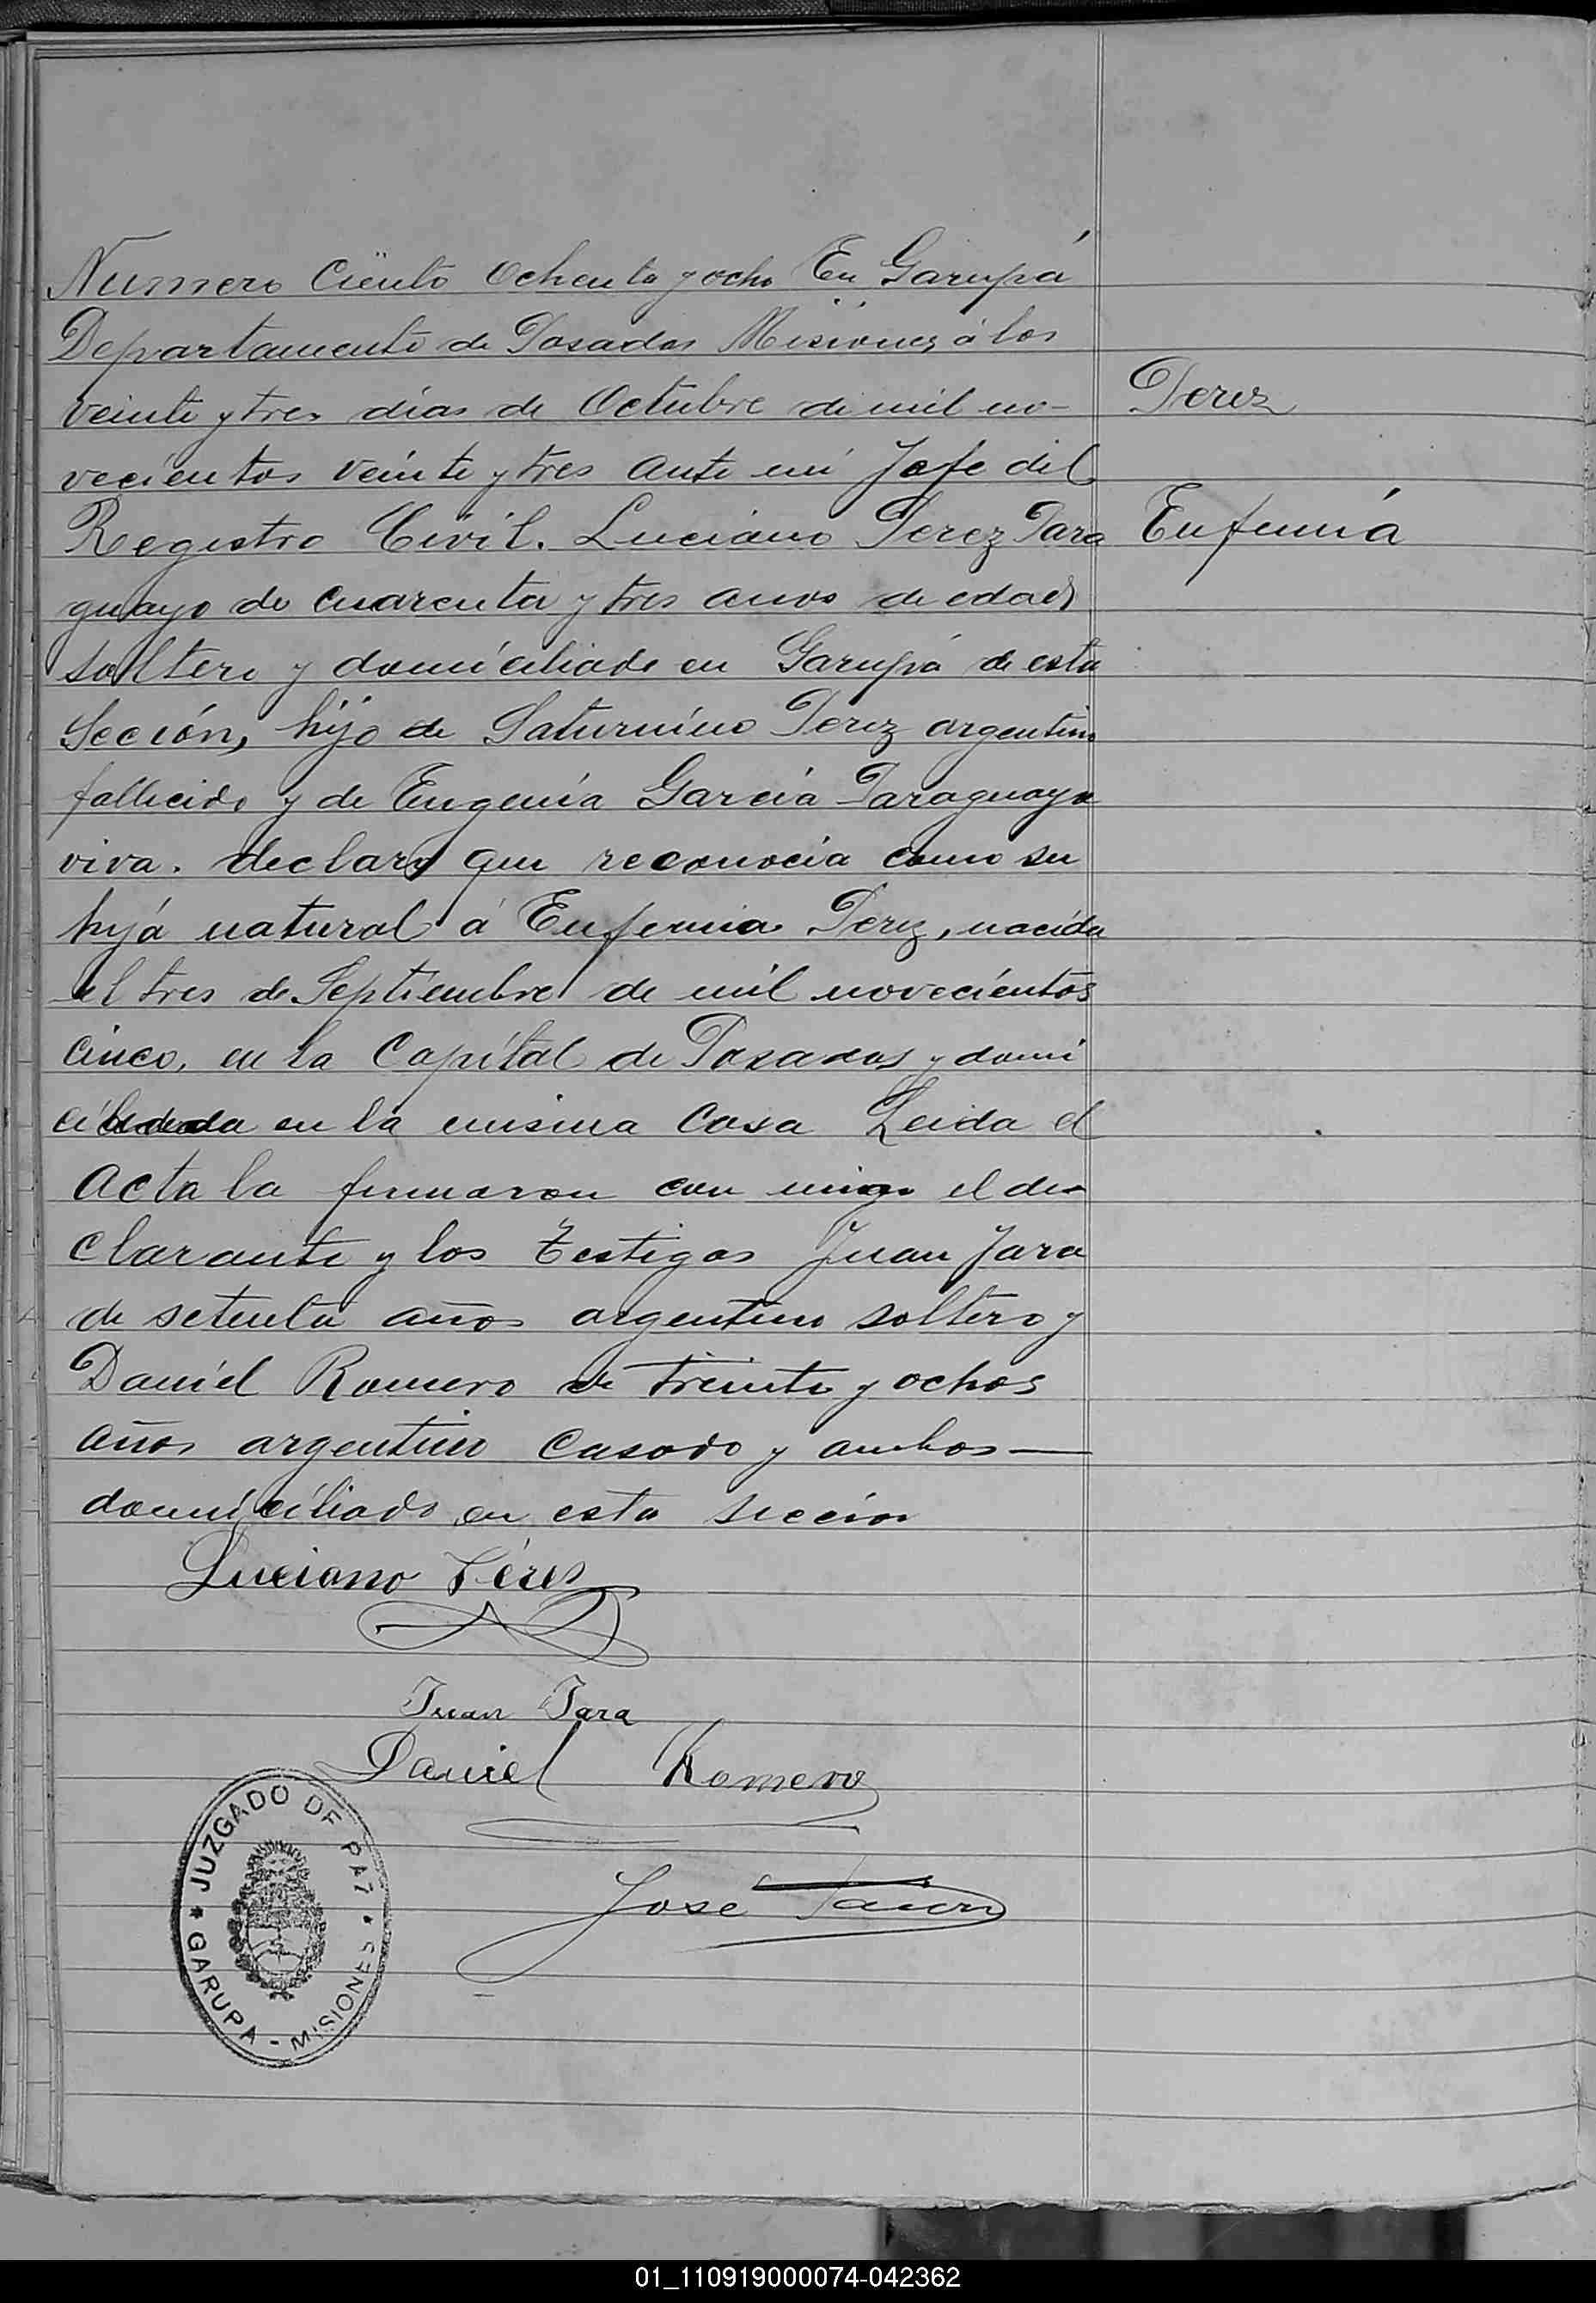 Numero Ciento Ochenta y ocho En Garupá
Departamento de Posadas Misiones á los
veinte y tres dias de Octubre de mil no-
vecientos veinte y tres ante mi Jefe del
Registro Civil. Luciano Perez Para
guayo de cuarenta y tres anos de edad
soltero y domiciliado en Garupá de esta
Sección, hijo de Saturnino Perez argentino
fallecido y de Eugenia Garcia Paraguaya
viva. declaro que reconocia como su
hija natural á Eufemia Perez, nacida
el tres de Septiembre de mil novecientos
cinco, en la Capital de Posadas y domi
ciliada en la misma Casa Leida el
Acta la firmaron con migo el de-
clarante y los testigos Juan Jara
de setenta años argentino soltero y
Daniel Romero de treinta y ochos
años argentino Casado y ambos
domiciliado en esta sección
Perez
Eufemia
Luciano Péres
Juan Jara
Daniel Romero
José
JUZGADO DE PAZ
GARUPA - MISIONES
01_110919000074-042362